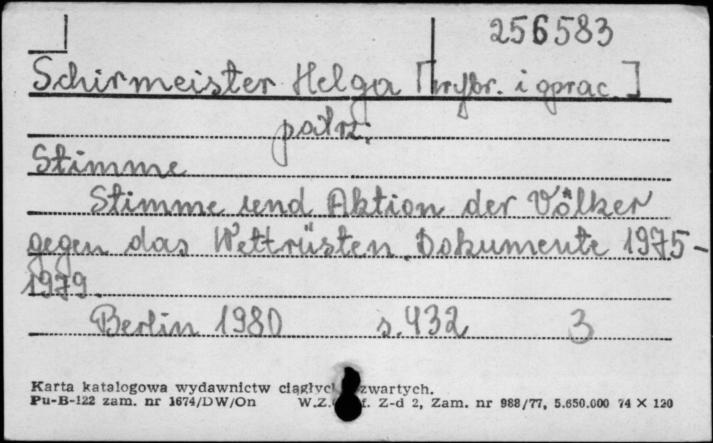 256583
Schirmeister Helga [wybr. i oprac.]
patrz:
Stimme
Stimme und Aktion der Völker
gegen das Wettrüsten. Dokumente 1975-
1979.
Berlin 1980 s. 432 3
Karta katalogowa wydawnictw ciągłych zwartych.
Pu-B-122 zam. nr 1674/DW/On W.Z. f. Z-d 2, Zam. nr 988/77, 5.650.000 74 X 120